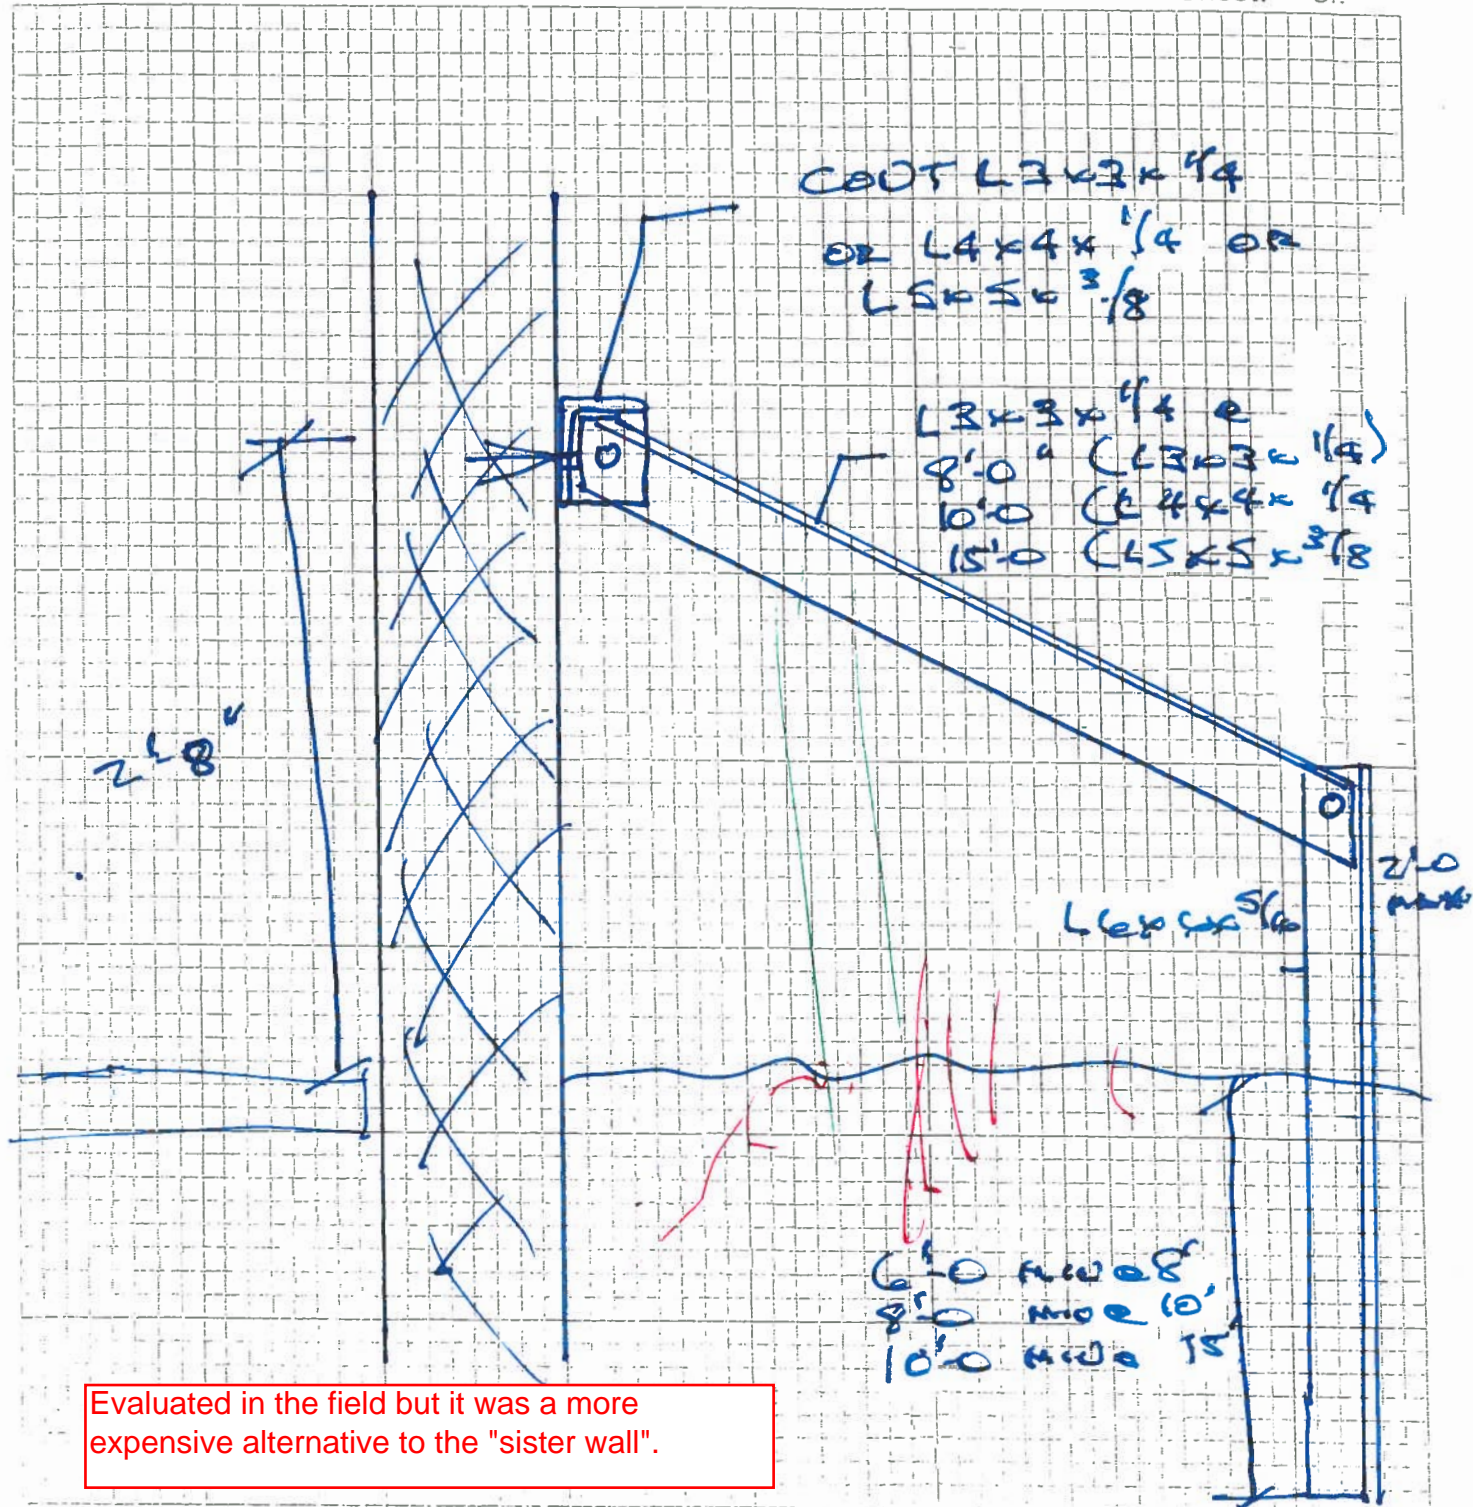 CONT L3x3x 1/4
OR L4x4x 1/4 OR
L5x5x 3/8
L3x3x 1/4 @
8'-0" (L3x3x 1/4)
10'-0 (L4x4x 1/4
15'-0 (L5x5x 3/8
2'-8"
2'-0
MAX
L6x6x 5/16
6'-0 MIN @ 8'
8'-0 MIN @ 10'
10'-0 MIN @ 15'
Evaluated in the field but it was a more
expensive alternative to the "sister wall".